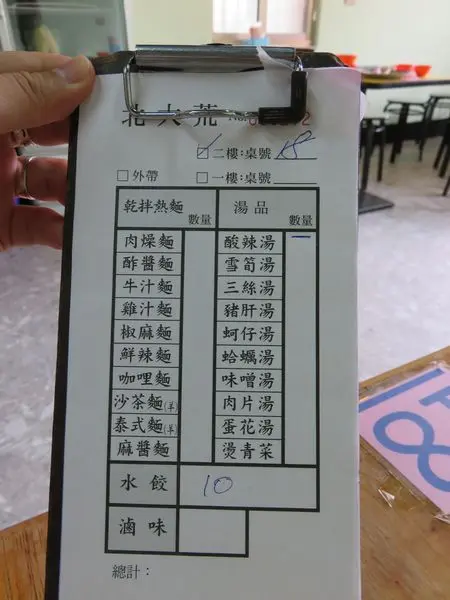 北大荒
☑二樓:桌號 18
□外帶 □一樓:桌號
乾拌熱麵 數量 湯品 數量
肉燥麵 酸辣湯 一
酢醬麵 雪筍湯
牛汁麵 三絲湯
雞汁麵 豬肝湯
椒麻麵 蚵仔湯
鮮辣麵 蛤蠣湯
咖哩麵 味噌湯
沙茶麵(羊) 肉片湯
泰式麵(羊) 蛋花湯
麻醬麵 燙青菜
水餃 10
滷味
總計: